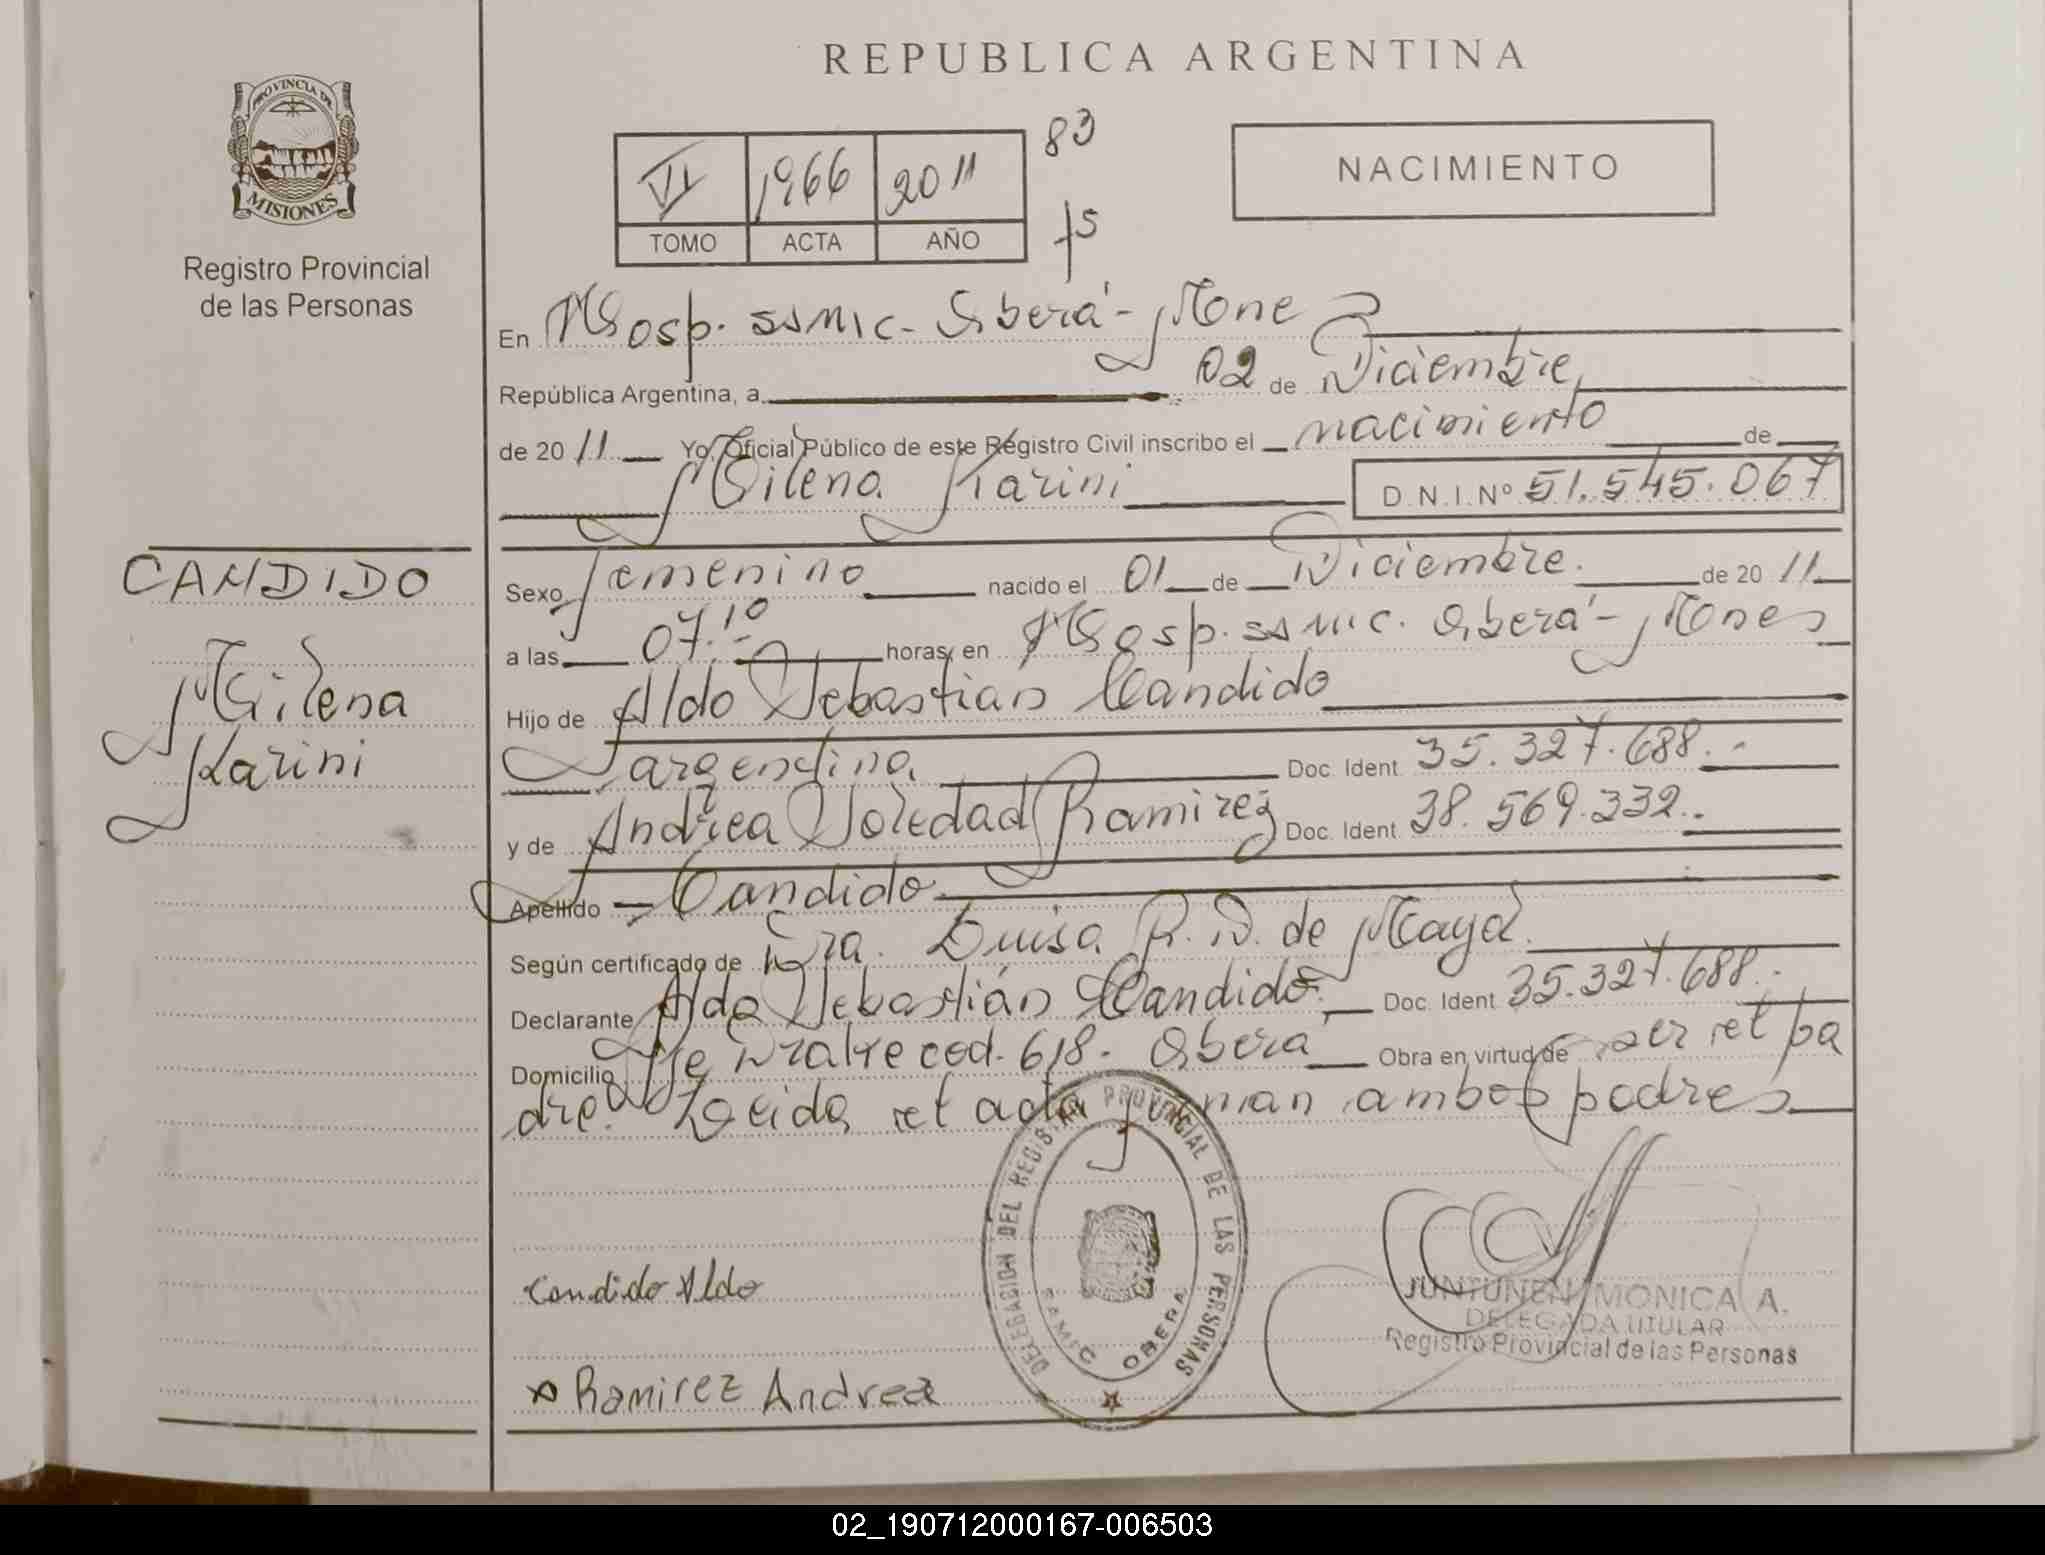 REPUBLICA ARGENTINA
PROVINCIA DE
MISIONES
Registro Provincial
de las Personas
VI 1966 2011
TOMO ACTA AÑO
83
f5
NACIMIENTO
En Hosp. SAMIC - Oberá - Mnes
República Argentina, a 02 de Diciembre
de 20 11 Yo, Oficial Público de este Registro Civil inscribo el nacimiento de
Milena Karini D.N.I.Nº 51.545.067
CANDIDO
Milena
Karini
Sexo femenino nacido el 01 de Diciembre. de 20 11
a las 07.10 horas, en Hosp. SAMIC. Oberá - Mones
Hijo de Aldo Sebastian Candido
argentina Doc. Ident. 35.327.688.-
y de Andrea Soledad Ramirez Doc. Ident. 38.569.332.-
Apellido Candido
Según certificado de Dra. Luisa R. D. de Maya
Declarante Aldo Sebastián Candido. Doc. Ident. 35.327.688.-
Domicilio 618. Oberá Obra en virtud de ser el pa
dre. Leida el acta firman ambos padres
DELEGACION DEL REGISTRO PROVINCIAL DE LAS PERSONAS
SAMIC OBERA
Candido Aldo
Ramirez Andrea
JUNTUNEN MONICA A.
DELEGADA TITULAR
Registro Provincial de las Personas
02_190712000167-006503